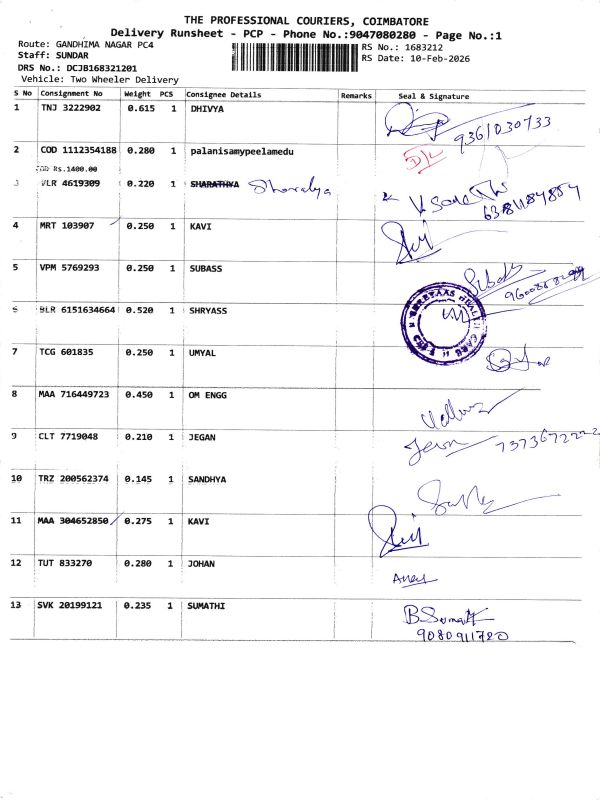 THE PROFESSIONAL COURIERS, COIMBATORE
Delivery Runsheet - PCP - Phone No.:9047080280 - Page No.:1
Route: GANDHIMA NAGAR PC4
Staff: SUNDAR
DRS No.: DCJB168321201
Vehicle: Two Wheeler Delivery
RS No.: 1683212
RS Date: 10-Feb-2026
S No Consignment No Weight PCS Consignee Details Remarks Seal & Signature
1 TNJ 3222902 0.615 1 DHIVYA 9361030733
2 COD 1112354188 0.280 1 palanisamypeelamedu D/L
COD Rs.1400.00
3 VLR 4619309 0.220 1 SHARATHYA
4 MRT 103907 0.250 1 KAVI
5 VPM 5769293 0.250 1 SUBASS
6 BLR 6151634664 0.520 1 SHRYASS
7 TCG 601835 0.250 1 UMYAL
8 MAA 716449723 0.450 1 OM ENGG
9 CLT 7719048 0.210 1 JEGAN 7373672222
10 TRZ 200562374 0.145 1 SANDHYA
11 MAA 304652850 0.275 1 KAVI
12 TUT 833270 0.280 1 JOHAN
13 SVK 20199121 0.235 1 SUMATHI B.Sumathi
9080911720